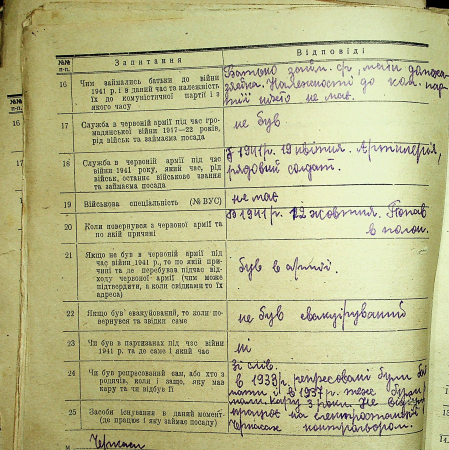 №№ п-п.
Запитання
Відповіді
16
Чим займались батьки до війни
1941 р. і в даний час та належність
їх до комуністичної партії і з
якого часу
Батько
мати домога-
зяйка. Належності до ком. пар-
тії ніхто не має.
17
Служба в червоній армії під час гро-
мадянської війни 1917—22 років,
рід військ та займаєма посада
не був
18
Служба в червоній армії під час
війни 1941 року, який час, рід
військ, останнє військове звання
та займаєма посада
1941 р. 19 квітня. Артилерія,
рядовий солдат.
19
Військова спеціальність (№ ВУС)
не має
20
Коли повернувся з червоної армії та
по якій причині
До 1941 р. 12 жовтня. Попав
в полон.
21
Якщо не був в червоній армії під
час війни 1941 р., то по якій при-
чині та де перебував підчас відхо-
ду червоної армії (чим може
підтвердити, а коли свідками то їх
адреса)
був в армії.
22
Якщо був евакуйований, то коли по-
вернувся та звідки саме
не був евакуїруваний
23
Чи був в партизанах під час війни
1941 р. та де саме і який час
ні
24
Чи був репресований сам, або хто з
родичів, коли і защо, яку мав
кару та чи відбув її
Зі слів.
в 1933 р. репресовані були ба-
і в 1937 р. теж були
мали кару 3 роки. Не
25
Засоби існування в даний момент-
(де працює і яку займає посаду)
працює на електростанції
Черкаси контрольором.
Черкаси